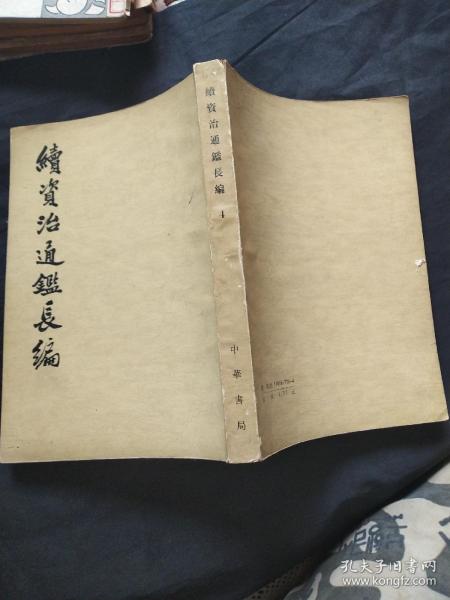 續資治通鑑長編
續資治通鑑長編
中華書局
孔夫子旧书网
www.kongfz.com